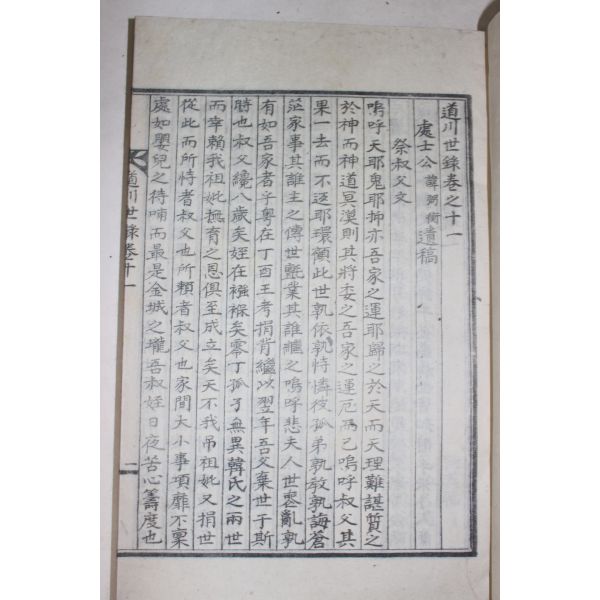 道川世錄卷之十一
處士公諱弼衡遺稿
祭叔父文
嗚呼天耶鬼耶抑亦吾家之運耶歸之於天而天理難諶質之
於神而神道冥漠則其將委之吾家之運厄而已嗚呼叔父其
果一去而不返耶環顧此世孰依孰恃憐彼孤弟孰敎孰誨蒼
茫家事其誰主之傳世氈業其誰繼之嗚呼悲夫人世零亂孰
有如吾家者乎粤在丁酉王考捐背繼以翌年吾父棄世于斯
時也叔父纔八歲矣姪在襁褓矣零丁孤孑無異韓氏之兩世
而幸賴我祖妣撫育之恩俱至成立矣天不我吊祖妣又捐世
從此而所恃者叔父也所賴者叔父也家間大小事項靡不稟
處如嬰兒之待哺而最是金城之壠吾叔姪日夜苦心籌度也
道川世錄卷十一
一